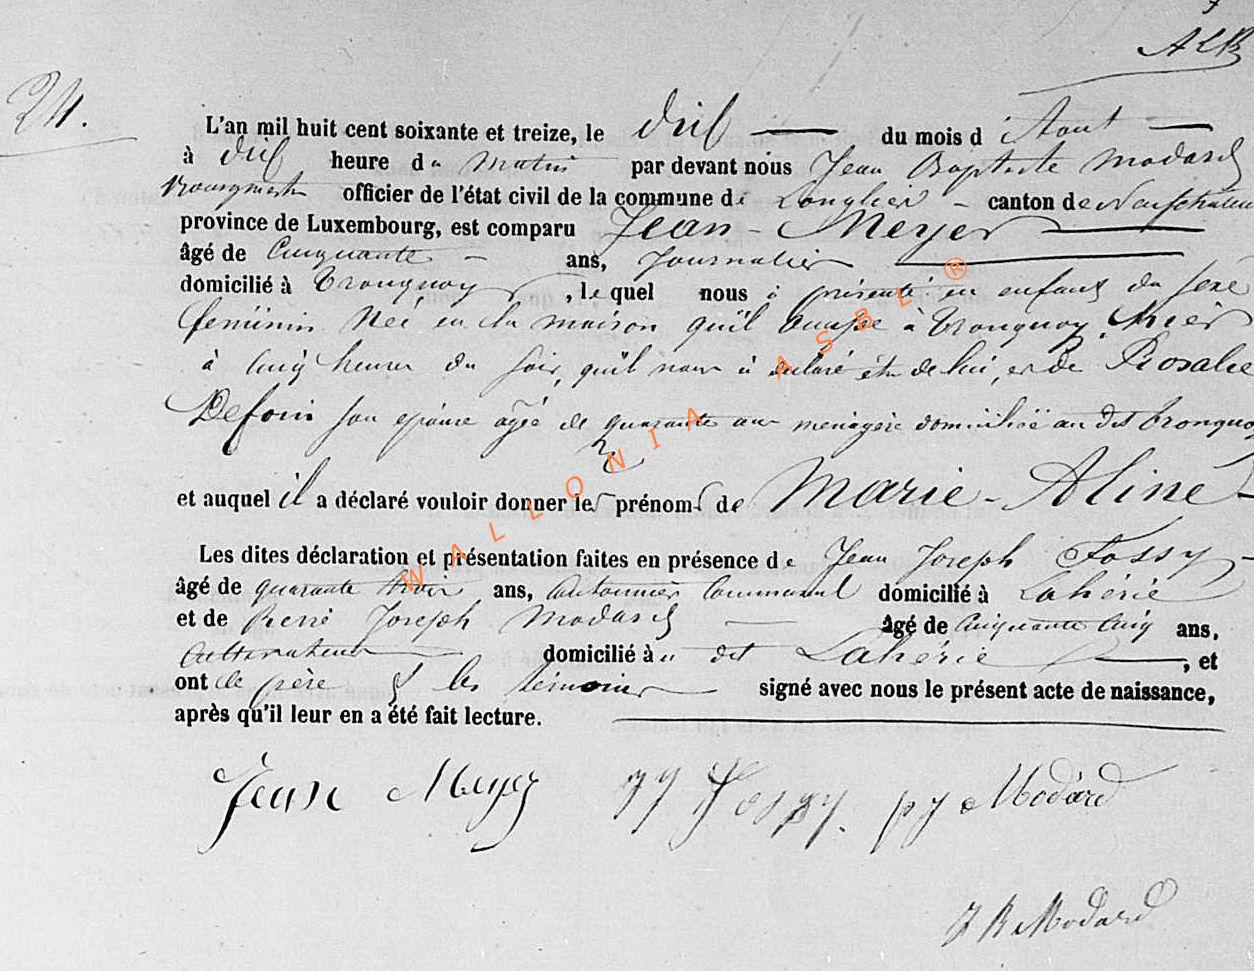 ALB
24.
L'an mil huit cent soixante et treize, le dix du mois d'Aout
à dix heure du matin par devant nous Jean Baptiste Modard
Bourgmestre officier de l'état civil de la commune de Longlier canton de Neufchateau
province de Luxembourg, est comparu Jean - Meyer
âgé de Cinquante ans, Journalier
domicilié à Tronquoy, lequel nous à présenté un enfant du sexe
feminin Neé en la maison qu'il occupe à Tronquoy, hier
à cinq heures du soir, qu'il nous à déclaré être de lui, et de Rosalie
Defoin son épouse agée de quarante ans menagère domiciliée au dit Tronquoy
et auquel il a déclaré vouloir donner les prénoms de Marie-Aline
Les dites déclaration et présentation faites en présence de Jean Joseph Fossy
âgé de quarante trois ans, Cantonnier Communal domicilié à Lahérie
et de Pierre Joseph Modard âgé de Cinquante Cinq ans,
Cultivateur domicilié à u dit Lahérie, et
ont le père & les témoins signé avec nous le présent acte de naissance,
après qu'il leur en a été fait lecture.
Jean Meyer JJ Fossy pJ Modard
J B Modard
WALLONIA ASBL ®